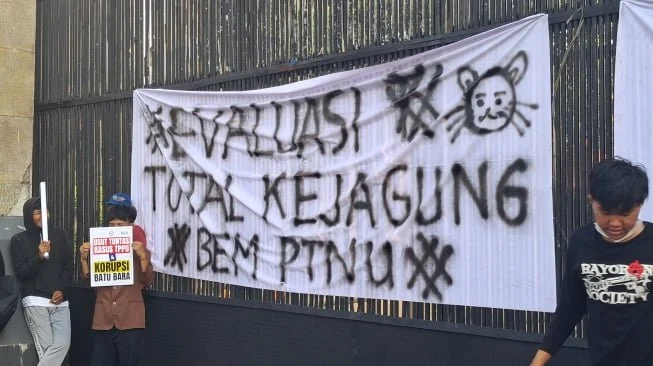 #EVALUASI
TOTAL KEJAGUNG
BEM PTNU
USUT TUNTAS
KASUS TPPU
&
KORUPSI
BATU BARA
CRAYORON
SOCIETY